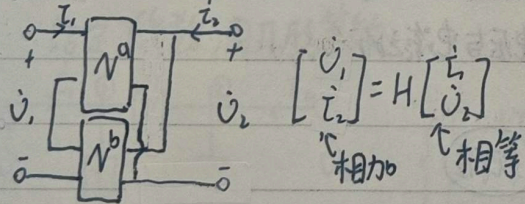 İ₁ İ₂
+ Nᵃ +
U̇₁ Nᵇ U̇₂
- -
[U̇₁ İ₂] = H [İ₁ U̇₂]
相加 相等